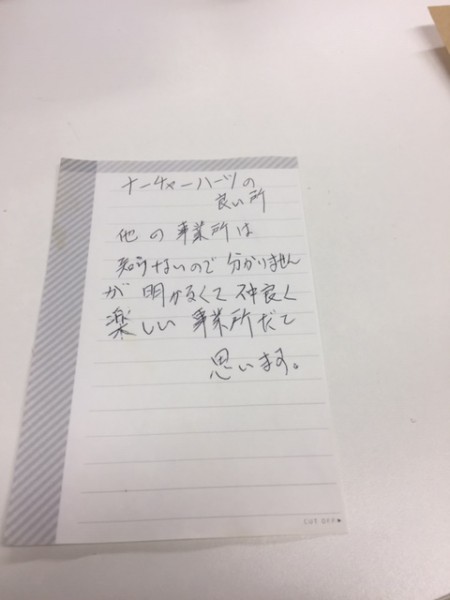 ナーチャーハーツの
良い所
他の事業所は
知らないので分かりません
が明かるくて仲良く
楽しい事業所だて
思います。
CUT OFF▶